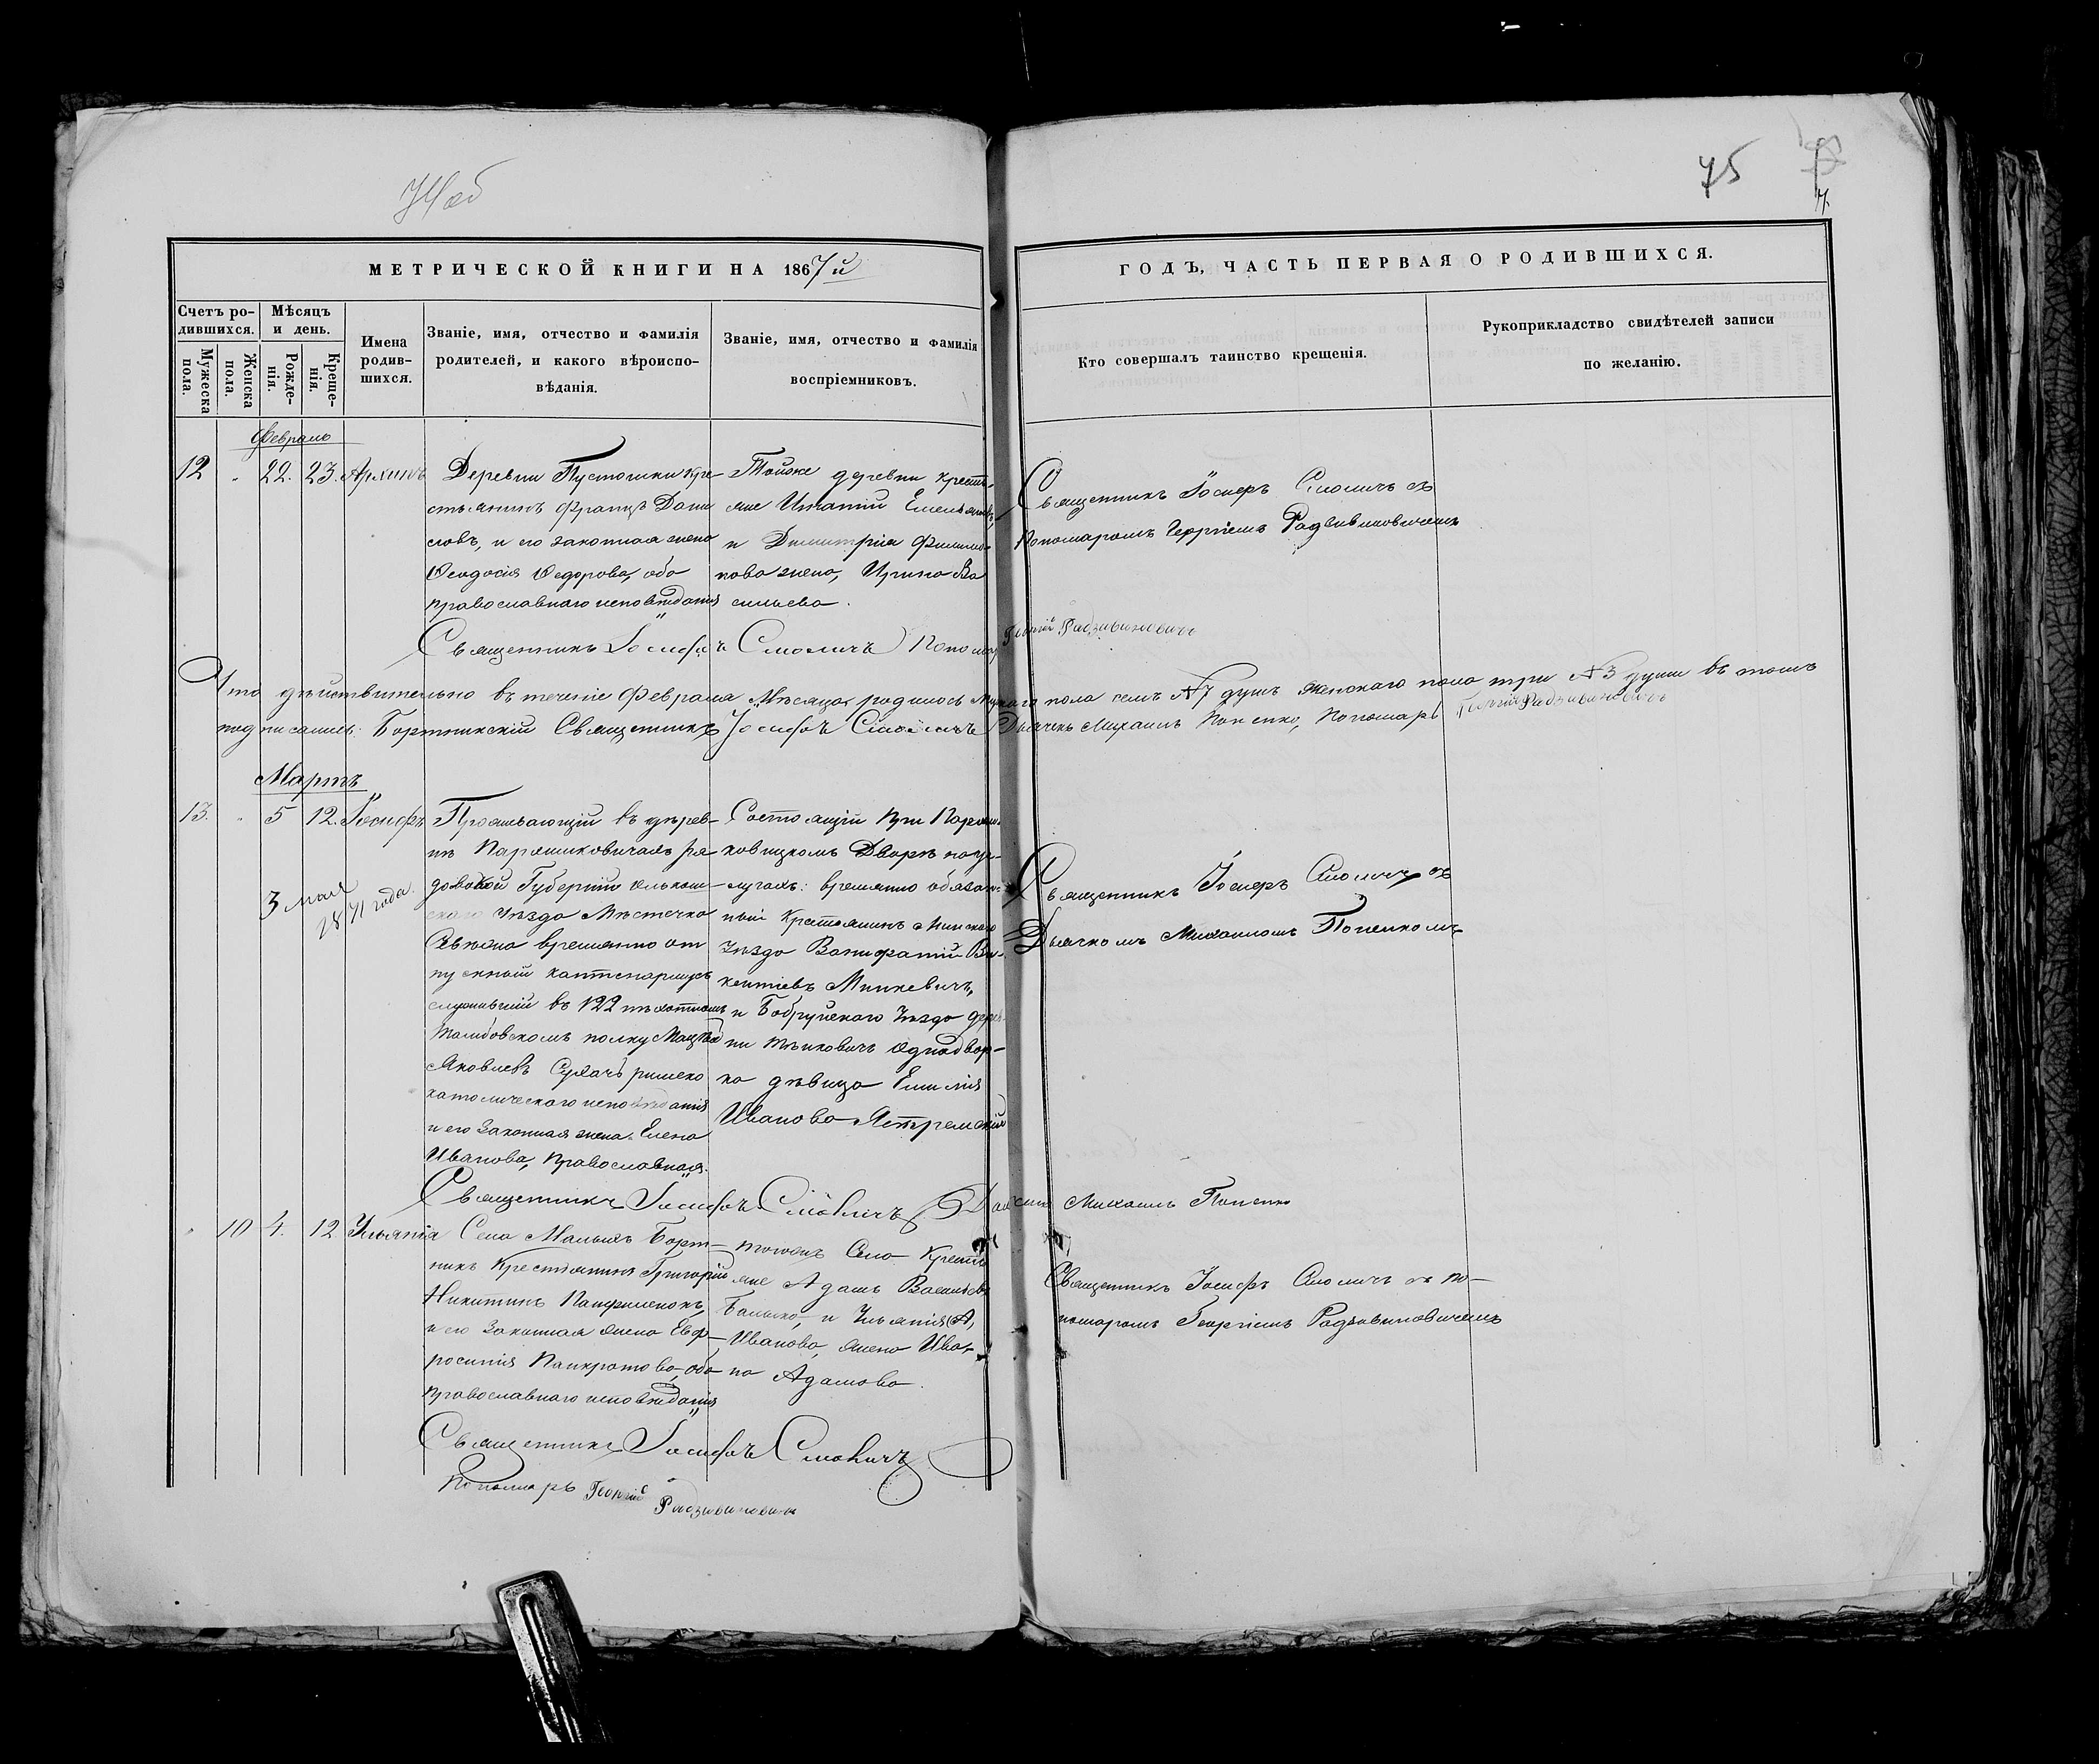 74об
75
7.
МЕТРИЧЕСКОЙ КНИГИ НА 1867й
ГОДЪ, ЧАСТЬ ПЕРВАЯ О РОДИВШИХСЯ.
Счетъ ро-
дившихся.
Мужеска
пола.
Женска
пола.
Мѣсяцъ
и день.
Рожде-
нія.
Креще-
нія.
Имена
родив-
шихся.
Званіе, имя, отчество и фамилія
родителей, и какого вѣроиспо-
вѣданія.
Званіе, имя, отчество и фамилія
воспріемниковъ.
Кто совершалъ таинство крещенія.
Рукоприкладство свидѣтелей записи
по желанію.
Февраль
12 22. 23. Архипъ
Деревни Пустошки кре-
стьянинъ Францъ Дани
ловъ, и его законная жена
Ѳеодосія Ѳедорова, оба
православнаго исповѣданія
Тойже деревни крестья-
не Игнатій Емельяновъ,
и Димитрія Филимо-
нова жена, Ирина Ва
сильева.
Священникъ Іосифъ Смоличъ съ
Пономаромъ Георгіемъ Радзивиновичемъ
Священникъ Іосифъ Смоличъ Пономарь Георгій Радзивиновичъ
Что дѣйствительно въ теченіе Февраля Мѣсяца родилось Мужскаго пола семь №7 душъ Женскаго пола три №3 души въ томъ
подписались: Бортникскій Священникъ Іосифъ Смоличъ Дьячекъ Михаилъ Попенко, Пономарь Георгій Радзивиновичъ
Мартъ
13. 5 12. Іосифъ
3 мая
1871 года.
Проживающій въ дерев-
нѣ Паршиковичахъ Ра-
домской Губерніи
уѣзда Мѣстечка
временно от
пускный каптенармусъ
служившій въ 122 пѣхотномъ
Тамбовскомъ полку
Яковлевъ Сухачъ римско
католическаго исповѣданія
и его законная жена Елена
Иванова, православная.
Состоящій при
Дворѣ на ус-
лугахъ: временно обязан-
ный Крестьянинъ Минскаго
Уѣзда Вонифатій Ви-
кентіевъ Минкевичъ,
и Бобруйскаго Уѣзда дерев-
ни однодвор-
ка дѣвица Емилія
Иванова
Священникъ Іосифъ Смоличъ съ
Дьячкомъ Михаиломъ Попенкомъ
Священникъ Іосифъ Смоличъ Дьячекъ Михаилъ Попенко
10 4. 12 Ульянія
Села Малыхъ Борт-
никъ Крестьянинъ Григорій
Никитинъ Панфиленокъ,
и его законная жена Евф-
росинія Панкратова, оба
православнаго исповѣданія
тогожъ Села Крестья
не Адамъ Васильевъ
Балыко, и Ульянія
Иванова, жена Ива-
на Адамова.
Священникъ Іосифъ Смоличъ съ По-
номаромъ Георгіемъ Радзивиновичемъ
Священникъ Іосифъ Смоличъ
Пономарь Георгій Радзивиновичъ